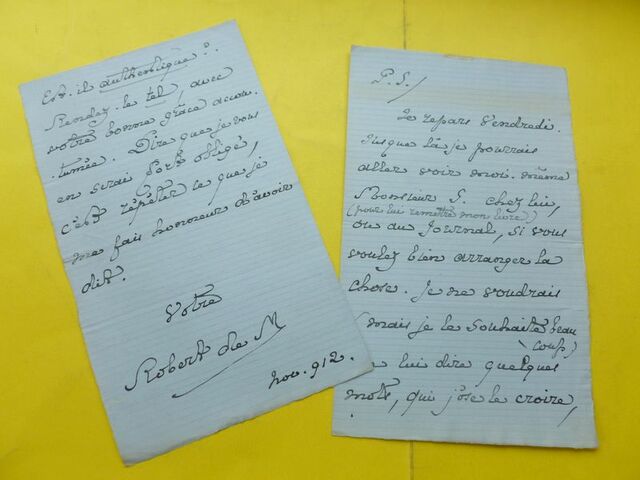 Est-il authentique?
Rendez-le tel, avec
votre bonne grâce accou-
tumée. Dire que je vous
en serais fort obligé,
c'est répéter ce que je
me fais honneur d'avoir
dit.
Votre
Robert de M
nov. 912.
P.S./
Je repars Vendredi.
Jusque là je pourrais
aller voir moi-même
Monsieur S. chez lui,
(pour lui remettre mon livre)
ou au Journal, si vous
voulez bien arranger la
chose. Je ne voudrais
(mais je le souhaite beau
coup)
lui dire quelques
mots, qui j'ose le croire,